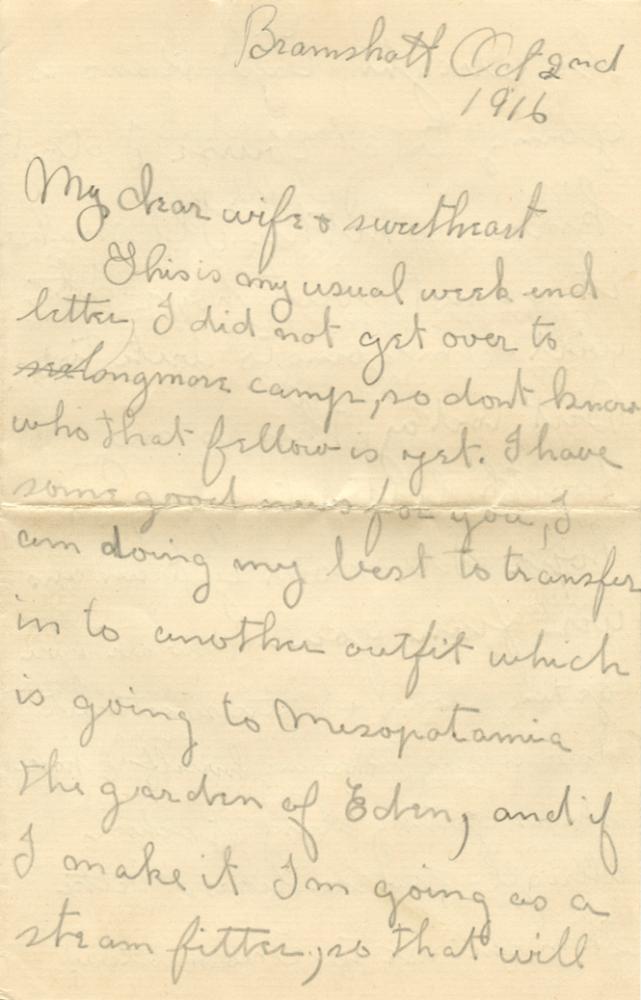 Bramshott Oct 2nd
1916
My dear wife & sweetheart
This is my usual week end
letter, I did not get over to
longmore camp, so dont know
who that fellow is yet. I have
some good news for you, I
am doing my best to transfer
in to another outfit which
is going to Mesopotamia
the garden of Eden, and if
I make it Im going as a
steam fitter, so that will